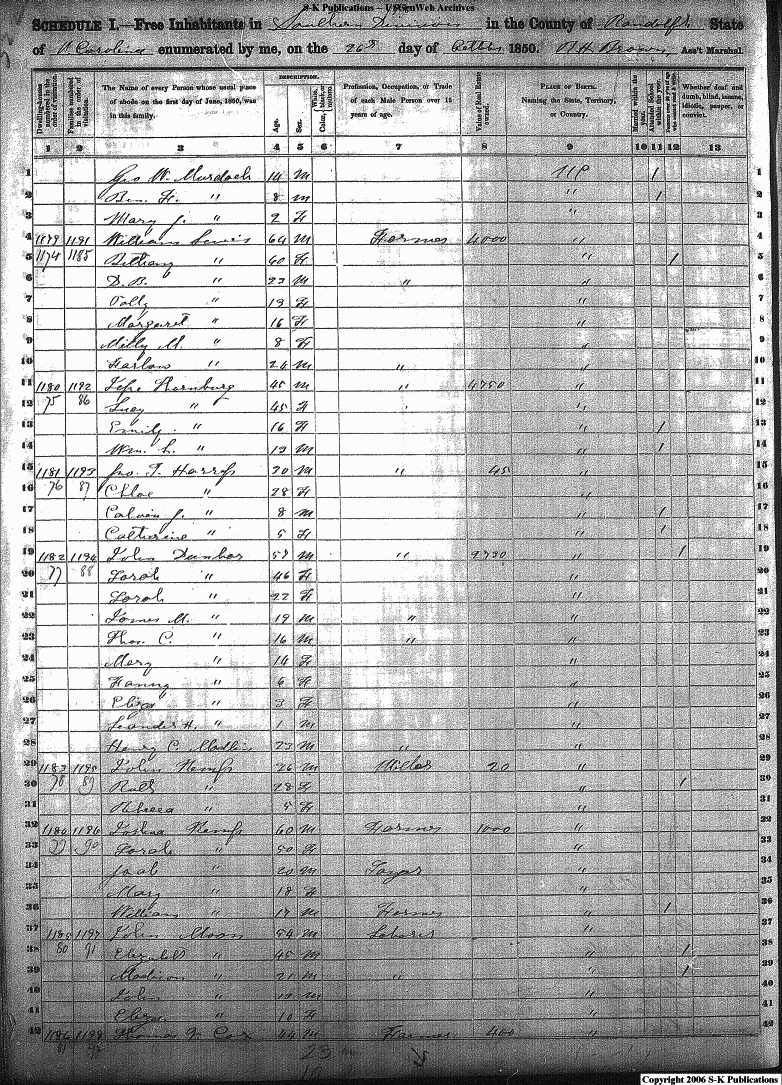 S-K Publications – USGenWeb Archives
SCHEDULE I.—Free Inhabitants in Southern Division in the County of Randolph State
of N Carolina enumerated by me, on the 26th day of 1850. Ass't Marshal.
Dwelling-houses numbered in the order of visitation.
Families numbered in the order of visitation.
The Name of every Person whose usual place of abode on the first day of June, 1850, was in this family.
DESCRIPTION.
Age.
Sex.
Color, White, black, or mulatto.
Profession, Occupation, or Trade of each Male Person over 15 years of age.
Value of Real Estate owned.
PLACE OF BIRTH.
Naming the State, Territory, or Country.
Married within the year.
Attended School within the year.
Persons over 20 y'rs of age who cannot read & write.
Whether deaf and dumb, blind, insane, idiotic, pauper, or convict.
1 2 3 4 5 6 7 8 9 10 11 12 13
1 Geo W. Murdoch 14 M / 1
2 Ben. F. " 8 M " / 2
3 Mary J. " 2 F " 3
4 1191 William Lewis 64 M Farmer 4000 " 4
5 1174 1185 Bethany " 60 F " / 5
6 D. B. " 23 M " " 6
7 Polly " 19 F " 7
8 Margaret " 16 F " 8
9 Milly M. " 8 F " 9
10 Harlow " 24 M " " 10
11 1180 1192 Hornburg 45 M " 4750 " 11
12 75 86 Lucy " 45 F " 12
13 Emily " 16 F " / 13
14 Wm. L. " 13 M " / 14
15 1181 1193 30 M " 45 " 15
16 76 87 Chloe " 28 F " 16
17 Calvin J. " 8 M " / 17
18 Catherine " 5 F " / 18
19 1182 1194 John Dunbar 57 M " " / 19
20 77 88 Sarah " 46 F " 20
21 Sarah " 22 F " 21
22 James M. " 19 M " " 22
23 Thos. C. " 16 M " " 23
24 Mary " 14 F " 24
25 " 6 F " 25
26 Eliza " 3 F " 26
27 Leander H. " 1 M " 27
28 Henry C. Modlin 23 M " " 28
29 1183 1195 John Kemp 26 M Miller 20 " 29
30 78 89 Ruth " 28 F " / 30
31 Rebecca " 5 F " 31
32 1184 1196 Joshua Kemp 60 M Farmer 1000 " 32
33 90 Sarah " 50 F " 33
34 Joab " 20 M " 34
35 Mary " 18 F " 35
36 William " 17 M Farmer " / 36
37 1185 1197 John Moon 54 M Laborer " 37
38 80 91 Elizabeth " 45 " / 38
39 Madison " 21 M " " / 39
40 John " 13 M " 40
41 Eliza " 10 F " 41
42 1186 1198 Thomas Cox 44 M Farmer 400 " 42
81 92 23 m
Copyright 2006 S-K Publications